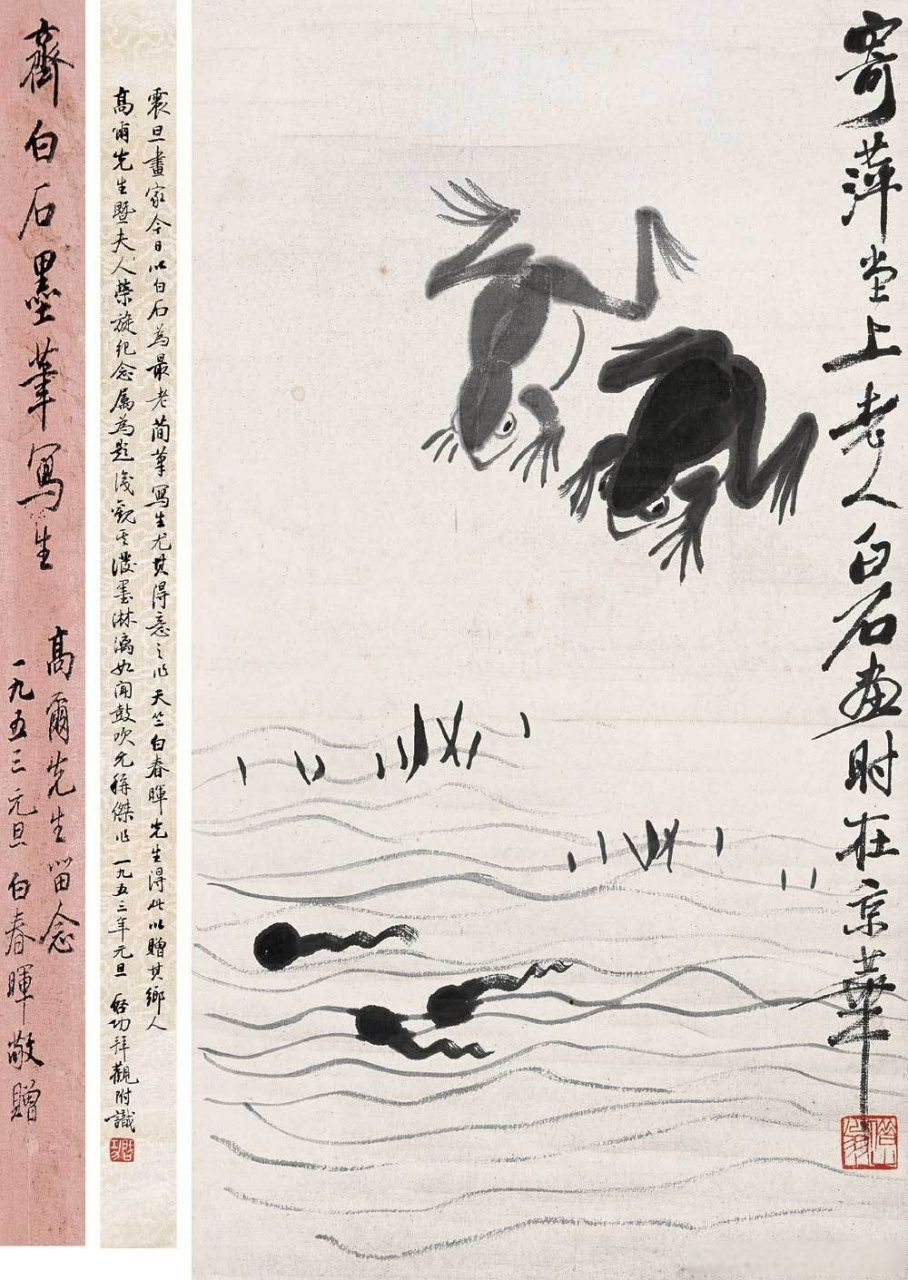 寄萍堂上老人白石畫时在京華
借山翁
震旦畫家今日以白石為最老簡筆寫生尤其得意之作天竺白春暉先生得此以贈其鄉人
高爾先生暨夫人榮旋紀念属為題後觀其潑墨淋漓如聞鼓吹允稱傑作一九五三年元旦 啓功拜觀附識
啓功
齊白石墨筆寫生
高爾先生留念
一九五三元旦 白春暉敬贈